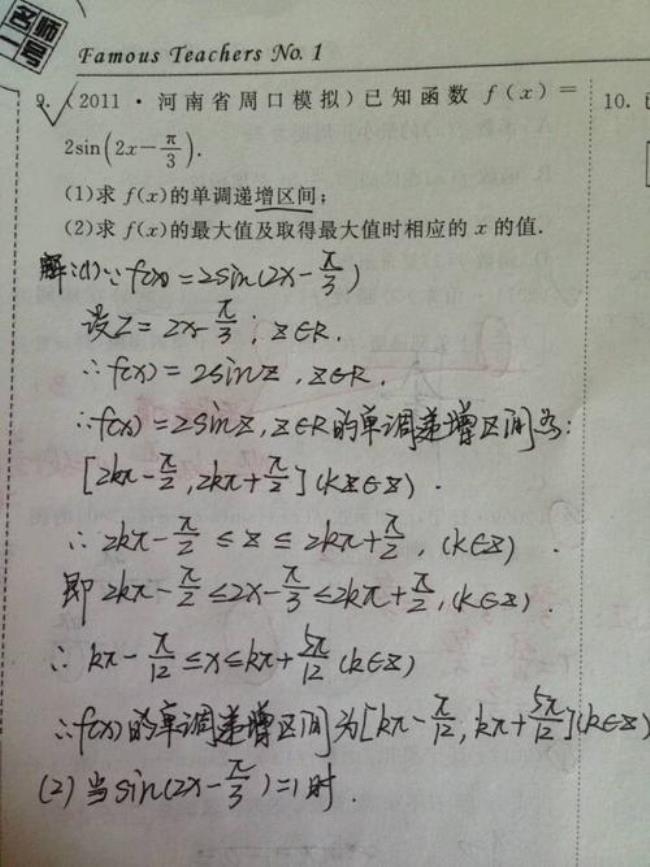 名师一号
Famous Teachers No. 1
9. (2011·河南省周口模拟)已知函数 f(x)=
2sin(2x-π/3).
(1)求 f(x)的单调递增区间;
(2)求 f(x)的最大值及取得最大值时相应的 x 的值.
10.
解:(1)∵f(x)=2sin(2x-π/3)
设Z=2x-π/3; z∈R.
∴f(x)=2sinz,z∈R.
∴f(x)=2sinz,z∈R的单调递增区间为:
[2kπ-π/2,2kπ+π/2](k∈z).
∴2kπ-π/2≤z≤2kπ+π/2,(k∈z).
即2kπ-π/2≤2x-π/3≤2kπ+π/2,(k∈z).
∴kπ-π/12≤x≤kπ+5π/12(k∈z)
∴f(x)的单调递增区间为[kπ-π/12,kπ+5π/12](k∈z)
(2)当sin(2x-π/3)=1时.